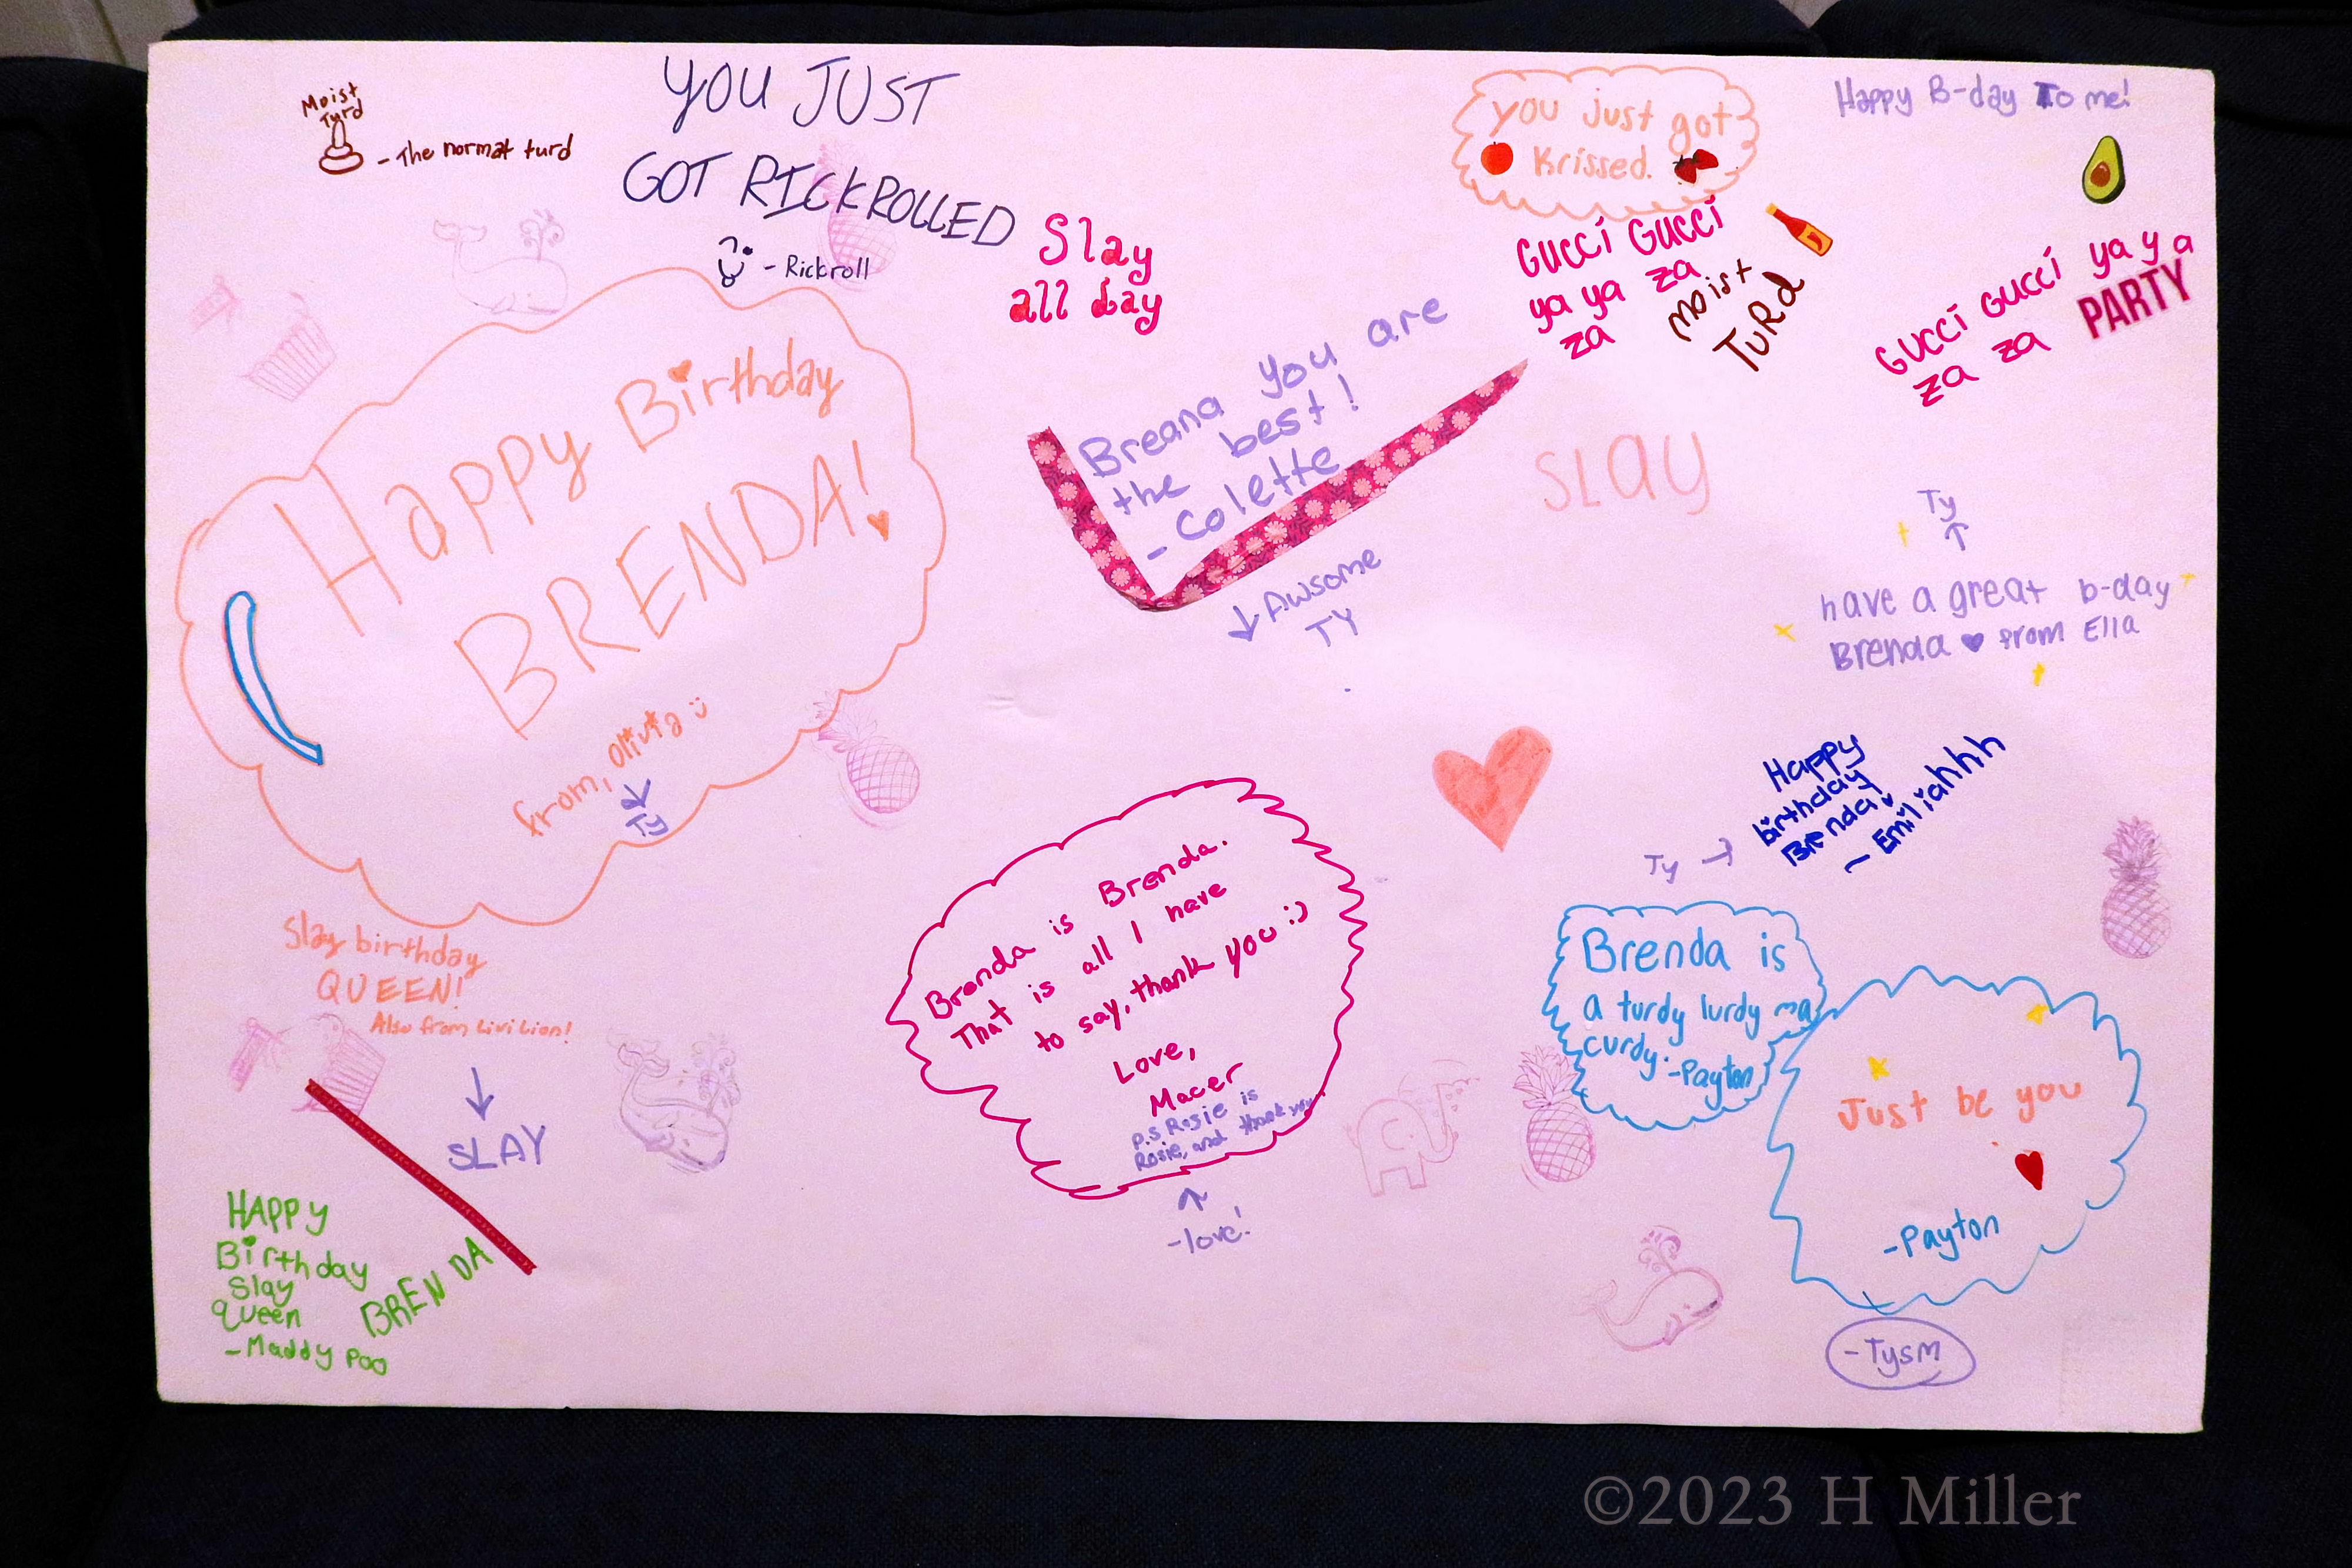 Moist
Turd
- The normat turd
YOU JUST
GOT RICKROLLED
- Rickroll
Slay
all day
you just got
Krissed.
Happy B-day To me!
GUCCi GUCCi
ya ya za
za
Moist
TuRd
GUCCi GUCCi ya ya
za za
PARTY
Happy Birthday
BRENDA!
from, Olivia :)
Ty
Breana you are
the best!
- Colette
Awsome
TY
SLAY
Ty
have a great b-day
Brenda ♥ from Ella
Happy
birthday
Brenda!
~ Emiliahhh
Ty →
Slay birthday
QUEEN!
Also from Livi Lion!
SLAY
HAPPY
Birthday
Slay
Queen
BRENDA
- Maddy Poo
Brenda is Brenda.
That is all I have
to say, thank you :)
Love,
Macer
p.s Rosie is
Rosie, and thank you
- love!
Brenda is
a turdy lurdy ma
curdy. - Payton
Just be you
- Payton
- Tysm
©2023 H Miller